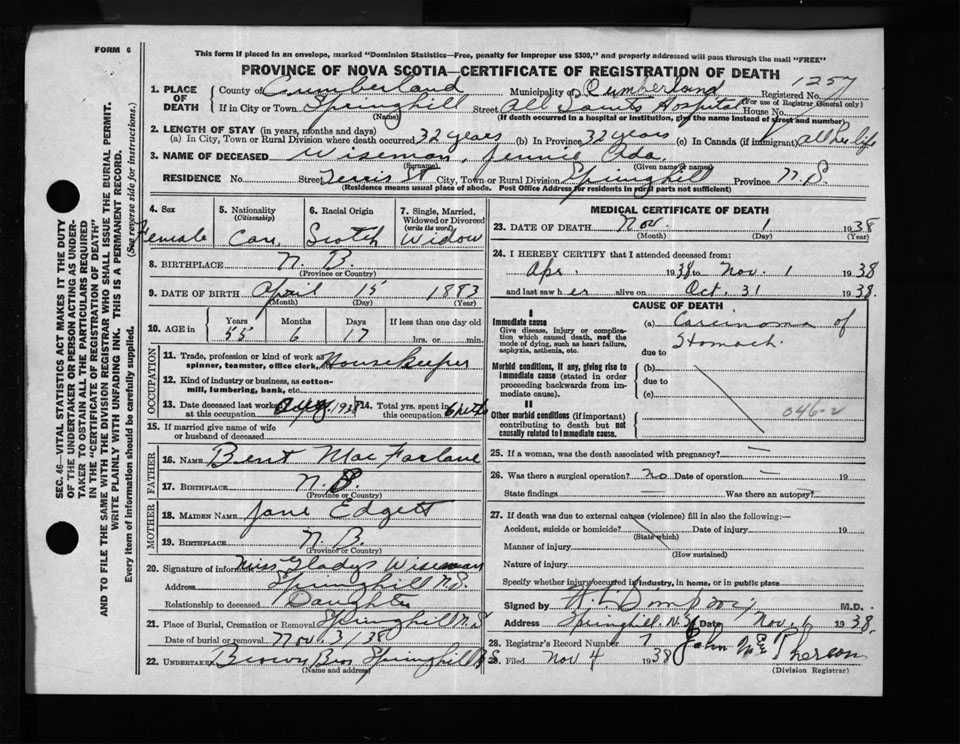 FORM 6
This form if placed in an envelope, marked "Dominion Statistics—Free, penalty for improper use $300," and properly addressed will pass through the mail "FREE"
PROVINCE OF NOVA SCOTIA—CERTIFICATE OF REGISTRATION OF DEATH
1. PLACE OF DEATH County of Cumberland Municipality of Cumberland Registered No. 1257
(For use of Registrar General only)
If in City or Town Springhill Street All Saints Hospital House No.
(Name) (If death occurred in a hospital or institution, give the name instead of street and number)
2. LENGTH OF STAY (in years, months and days)
(a) In City, Town or Rural Division where death occurred 32 years (b) In Province 32 years (c) In Canada (if immigrant) all her life
3. NAME OF DECEASED Wiseman, Jennie Ada
(Surname) (Given name or names)
RESIDENCE No. Street Terris St City, Town or Rural Division Springhill Province N.S.
(Residence means usual place of abode. Post Office Address for residents in rural parts not sufficient)
4. Sex Female
5. Nationality (Citizenship) Can.
6. Racial Origin Scotch
7. Single, Married, Widowed or Divorced (write the word) Widow
8. BIRTHPLACE N.B.
(Province or Country)
9. DATE OF BIRTH April 15 1883
(Month) (Day) (Year)
10. AGE in Years Months Days If less than one day old
55 6 17 hrs. or min.
OCCUPATION
11. Trade, profession or kind of work as spinner, teamster, office clerk, Housekeeper
12. Kind of industry or business, as cotton-mill, lumbering, bank, etc.
13. Date deceased last worked at this occupation Aug. 1938 14. Total yrs. spent in this occupation
15. If married give name of wife or husband of deceased
FATHER
16. Name Bent MacFarlane
17. Birthplace N.B.
(Province or Country)
MOTHER
18. Maiden Name Jane Edgett
19. Birthplace N.B.
(Province or Country)
20. Signature of informant Miss Gladys Wiseman
Address Springhill N.S.
Relationship to deceased Daughter
21. Place of Burial, Cremation or Removal Springhill N.S
Date of burial or removal Nov. 3/38
22. Undertaker Brown Bros Springhill N.S
(Name and address)
MEDICAL CERTIFICATE OF DEATH
23. DATE OF DEATH Nov. 1 1938
(Month) (Day) (Year)
24. I HEREBY CERTIFY that I attended deceased from:
Apr. 1938 to Nov. 1 1938
and last saw her alive on Oct. 31 1938.
CAUSE OF DEATH
I
Immediate cause
Give disease, injury or complication which caused death, not the mode of dying, such as heart failure, asphyxia, asthenia, etc.
(a) Carcinoma of Stomach.
due to
Morbid conditions, if any, giving rise to immediate cause (stated in order proceeding backwards from immediate cause).
(b)
due to
(c)
II
Other morbid conditions (if important) contributing to death but not causally related to immediate cause.
046-2
25. If a woman, was the death associated with pregnancy? —
26. Was there a surgical operation? no Date of operation — 19
State findings — Was there an autopsy? —
27. If death was due to external causes (violence) fill in also the following:—
Accident, suicide or homicide? Date of injury 19
(State which)
Manner of injury
(How sustained)
Nature of injury
Specify whether injury occurred in industry, in home, or in public place
Signed by M.D.
Address Springhill, N.S. Date Nov 1938.
28. Registrar's Record Number 7 John McPherson
29. Filed Nov 4 1938
(Division Registrar)
SEC. 46—VITAL STATISTICS ACT MAKES IT THE DUTY
OF THE UNDERTAKER OR PERSON ACTING AS UNDER-
TAKER TO OBTAIN ALL THE PARTICULARS REQUIRED
IN THE "CERTIFICATE OF REGISTRATION OF DEATH"
AND TO FILE THE SAME WITH THE DIVISION REGISTRAR WHO SHALL ISSUE THE BURIAL PERMIT.
WRITE PLAINLY WITH UNFADING INK. THIS IS A PERMANENT RECORD.
Every item of information should be carefully supplied. (See reverse side for instructions.)